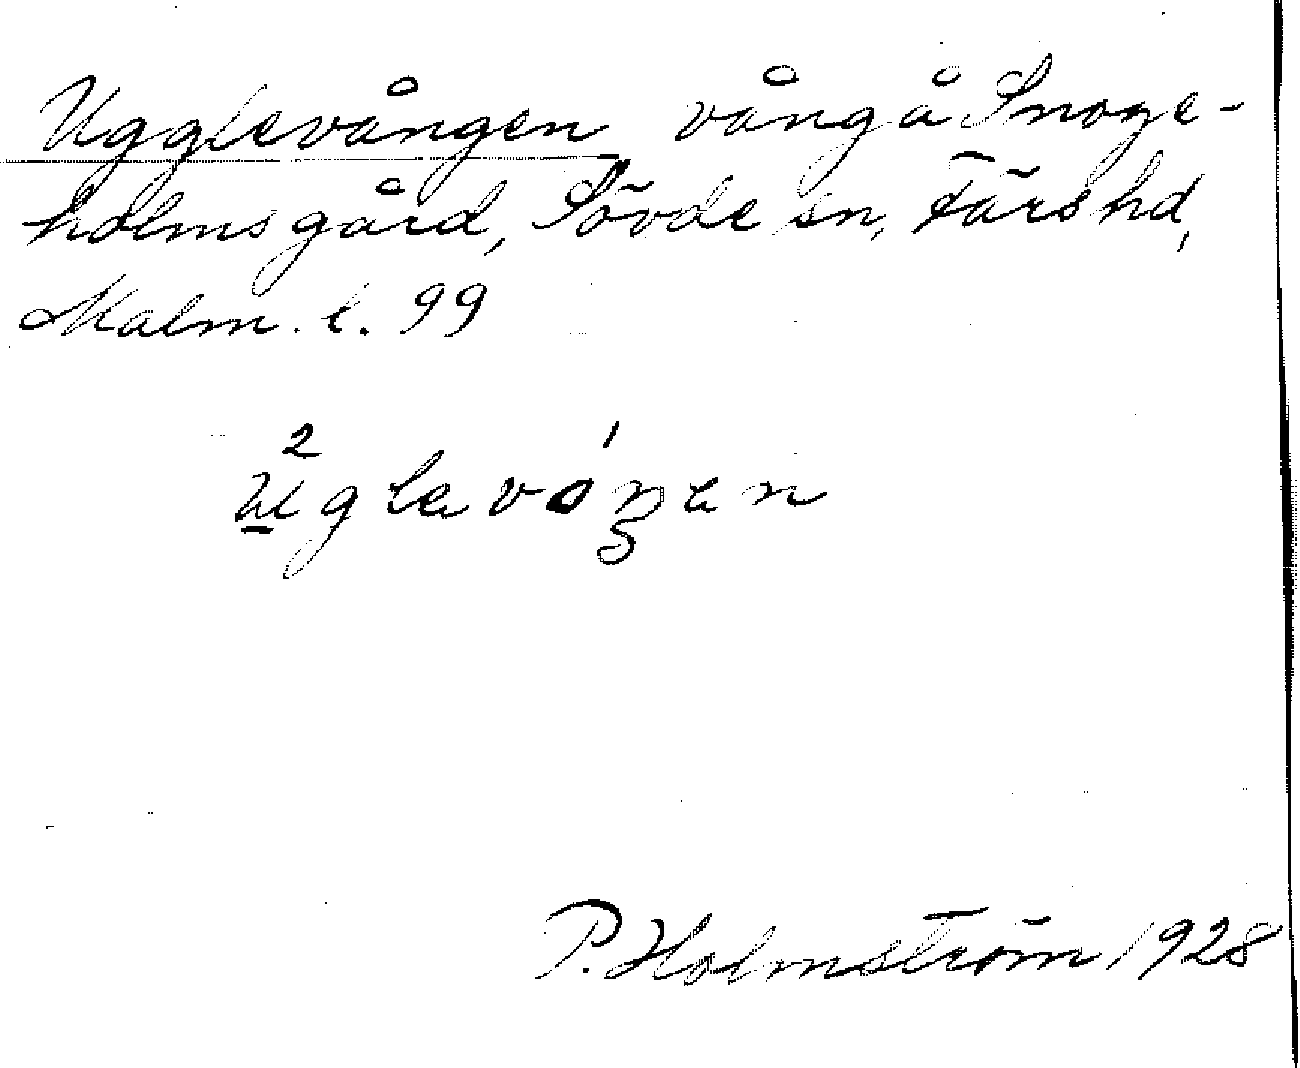 Ugglevången vång å Snoge-
holms gård, Sövde sn, Färs hd,
Malm. l. 99
u̲²glavóŋen
P. Holmström 1928